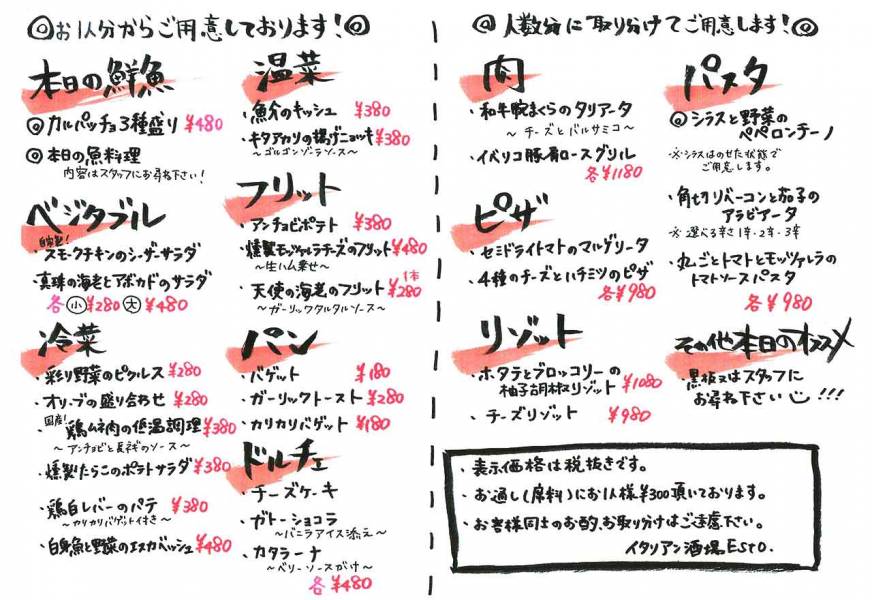 ◎お1人分からご用意しております!◎
本日の鮮魚
◎カルパッチョ3種盛り ¥480
◎本日の魚料理
内容はスタッフにお尋ね下さい!
ベジタブル
自家製!
・スモークチキンのシーザーサラダ
・真珠の海老とアボカドのサラダ
各 小 ¥280 大 ¥480
冷菜
・彩り野菜のピクルス ¥280
・オリーブの盛り合わせ ¥280
国産!
・鶏ムネ肉の低温調理 ¥380
〜アンチョビと長ネギのソース〜
・燻製たらこのポテトサラダ ¥380
・鶏白レバーのパテ ¥380
〜カリカリバゲット付き〜
・白身魚と野菜のエスカベッシュ ¥480
温菜
・魚介のキッシュ ¥380
・キタアカリの揚げニョッキ ¥380
〜ゴルゴンゾーラソース〜
フリット
・アンチョビポテト ¥380
・燻製モッツァレラチーズのフリット ¥480
〜生ハム乗せ〜
・天使の海老のフリット 1本 ¥280
〜ガーリックタルタルソース〜
パン
・バゲット ¥180
・ガーリックトースト ¥280
・カリカリバゲット ¥180
ドルチェ
・チーズケーキ
・ガトーショコラ
〜バニラアイス添え〜
・カタラーナ
〜ベリーソースがけ〜
各 ¥480
◎人数分に取り分けてご用意します!◎
肉
・和牛腕まくらのタリアータ
〜チーズとバルサミコ〜
・イベリコ豚肩ロースグリル
各¥1180
ピザ
・セミドライトマトのマルゲリータ
・4種のチーズとハチミツのピザ
各¥980
リゾット
・ホタテとブロッコリーの
柚子胡椒リゾット ¥1080
・チーズリゾット ¥980
パスタ
◎シラスと野菜の
ペペロンチーノ
※シラスはのせた状態で
ご用意します。
・角切りベーコンと茄子の
アラビアータ
※選べる辛さ1辛・2辛・3辛
・丸ごとトマトとモッツァレラの
トマトソースパスタ
各¥980
その他本日のオススメ
・黒板又はスタッフに
お尋ね下さい!!!
・表示価格は税抜きです。
・お通し(席料)にお1人様¥300頂いております。
・お客様同士のお酌、お取り分けはご遠慮下さい。
イタリアン酒場Esto.